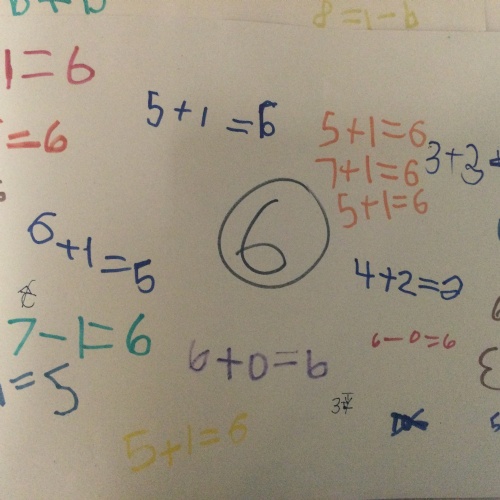 1=6
5+1=6
5+1=6
7+1=6
5+1=6
3+3
=6
6
6+1=5
4+2=
7-1=6
6-0=6
6+0=6
=5
5+1=6